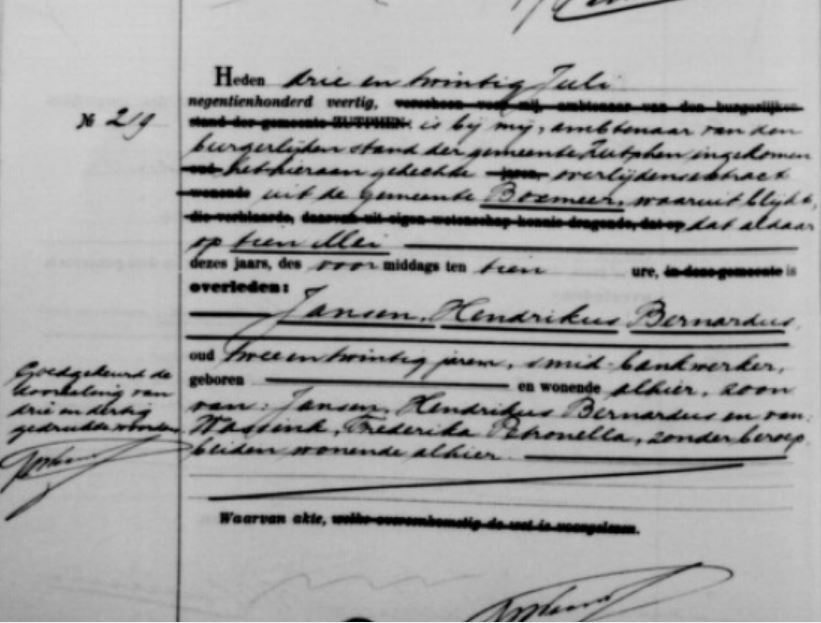 Heden drie en twintig Juli
negentienhonderd veertig, verscheen voor mij, ambtenaar van den burgerlijken
№ 219
stand der gemeente ZUTPHEN: is bij mij, ambtenaar van den
burgerlijken stand der gemeente Zutphen ingekomen
het hieraan gehechte jaren, overlijdensextract
wonende uit de gemeente Boxmeer, waaruit blijkt,
die verklaarde, daarvan uit eigen wetenschap kennis dragende, dat op dat aldaar
op tien Mei
dezes jaars, des voor middags ten tien ure, in deze gemeente is
overleden:
Jansen, Hendrikus Bernardus,
oud twee en twintig jaren, smid-bankwerker,
geboren en wonende alhier, zoon
van: Jansen, Hendrikus Bernardus en van:
Wassink, Frederika Petronella, zonder beroep,
beiden wonende alhier.
Goedgekeurd de
doorhaling van
drie en dertig
gedrukte woorden
Waarvan akte, welke overeenkomstig de wet is voorgelezen.